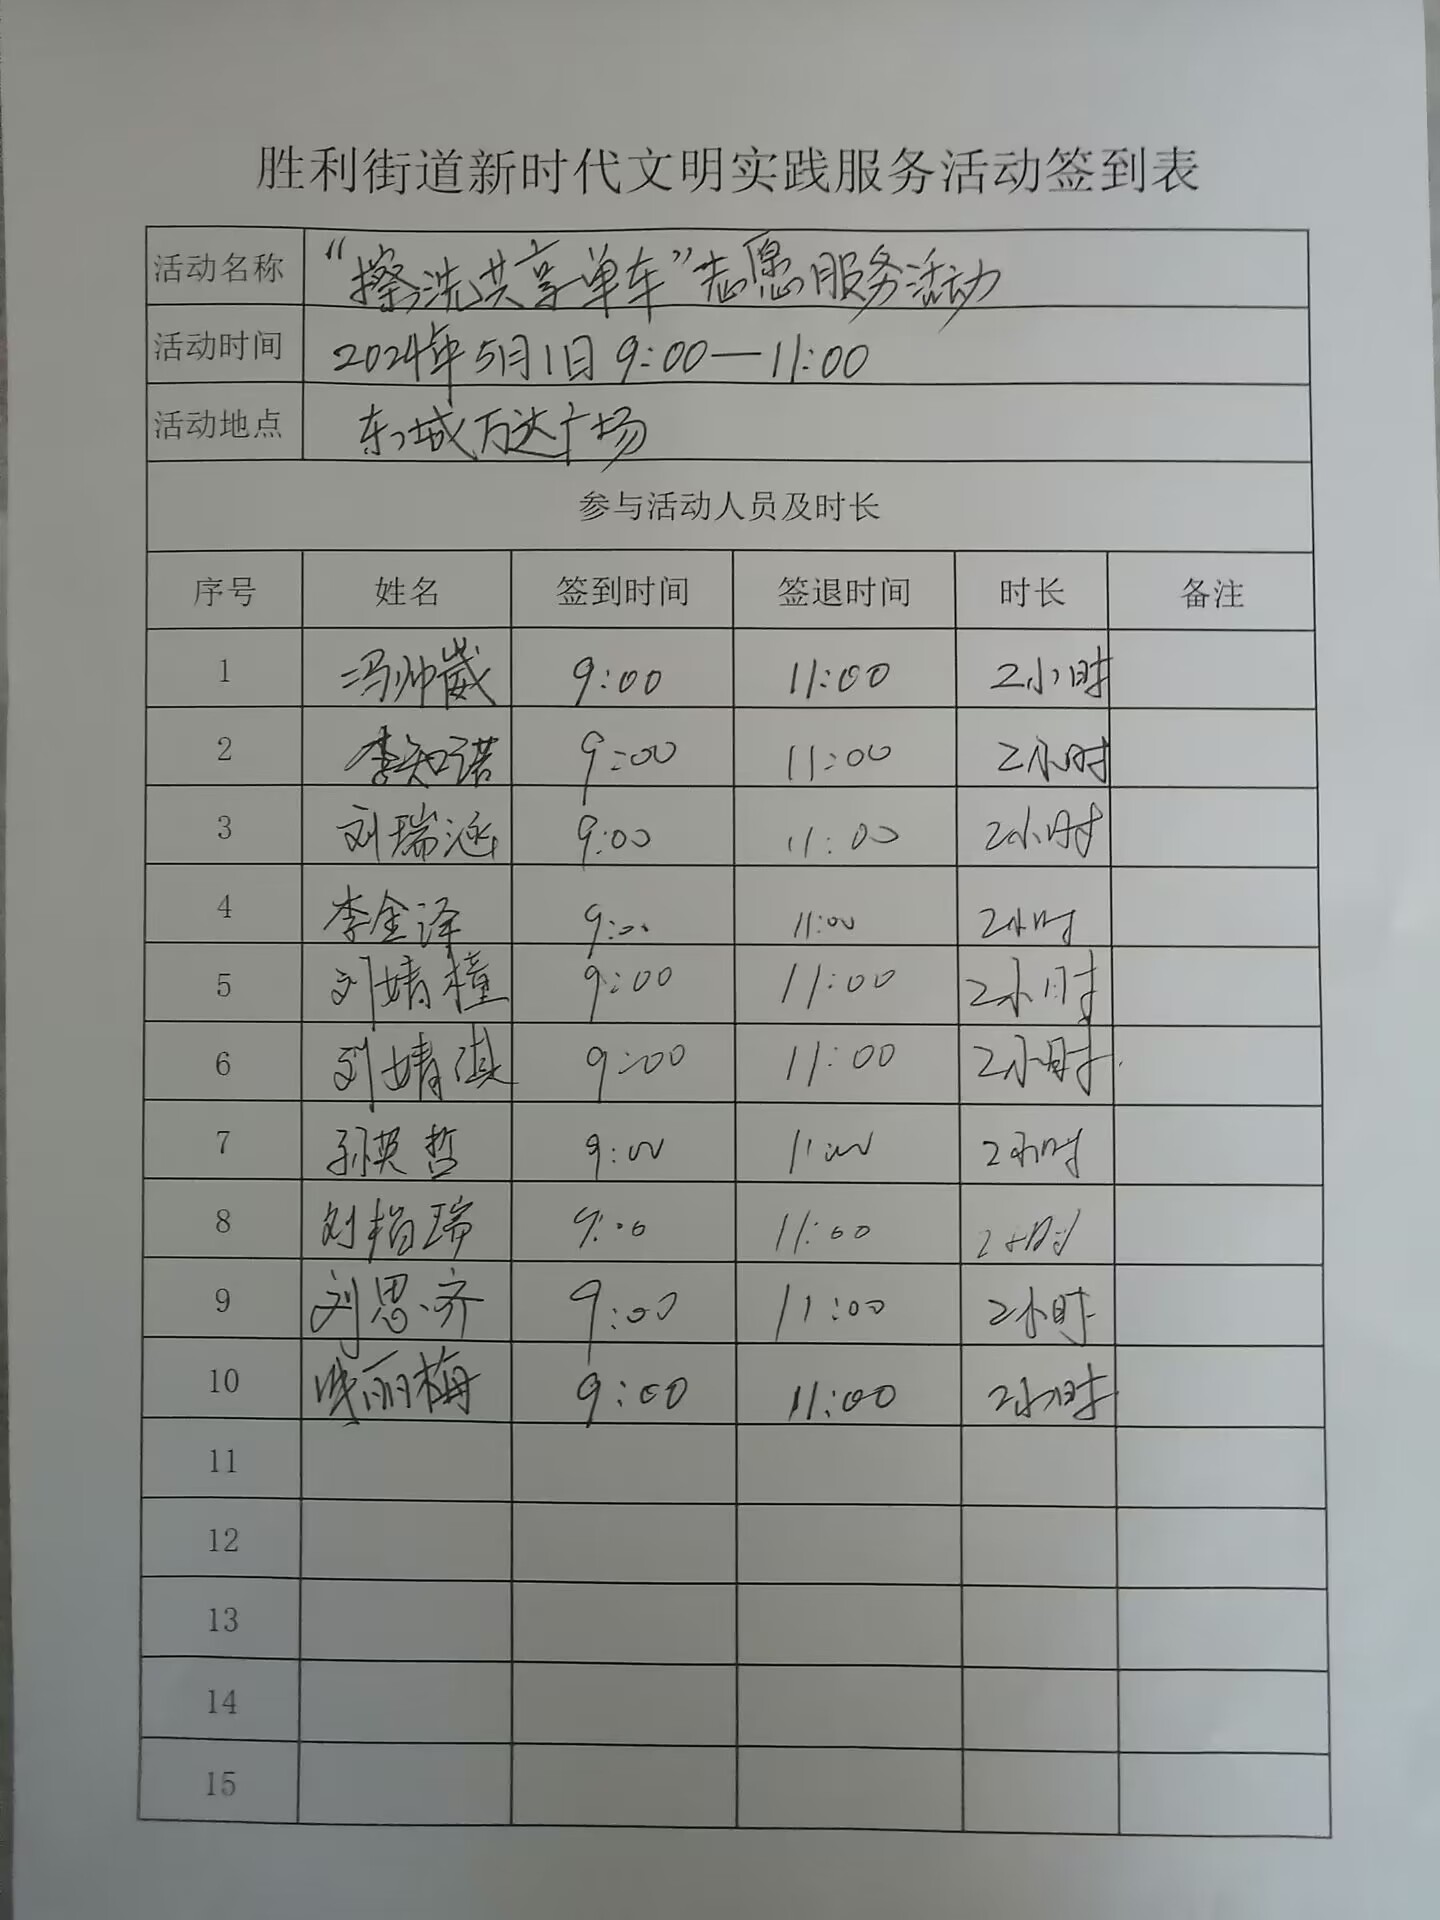 胜利街道新时代文明实践服务活动签到表
活动名称 “擦洗共享单车”志愿服务活动
活动时间 2024年5月1日 9:00—11:00
活动地点 东城万达广场
参与活动人员及时长
序号 姓名 签到时间 签退时间 时长 备注
1 冯帅崴 9:00 11:00 2小时
2 李知诺 9:00 11:00 2小时
3 刘瑞涵 9:00 11:00 2小时
4 李金泽 9:00 11:00 2小时
5 刘婧橦 9:00 11:00 2小时
6 刘婧淇 9:00 11:00 2小时
7 孙英哲 9:00 11:00 2小时
8 刘柏瑞 9:00 11:00 2小时
9 刘思齐 9:00 11:00 2小时
10 丽梅 9:00 11:00 2小时
11
12
13
14
15